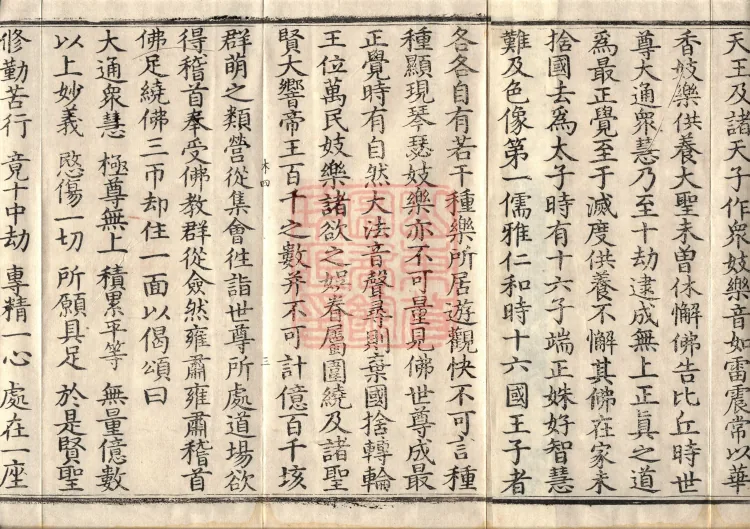 天王及諸天子作衆妓樂音如雷震常以華
香妓樂供養大聖未曽休懈佛告比丘時世
尊大通衆慧乃至十劫逮成無上正真之道
爲最正覺至于滅度供養不懈其佛在家未
捨國去爲太子時有十六子端正姝好智慧
難及色像第一儒雅仁和時十六國王子者
各各自有若干種樂所居遊觀快不可言種
種顯現琴瑟妓樂亦不可量見佛世尊成最
正覺時有自然大法音聲尋則棄國捨轉輪
王位萬民妓樂諸欲之娯眷屬圍繞及諸聖
賢大響帝王百千之數并不可計億百千垓
休四
三
群萌之類營從集會徃詣世尊所處道場欲
得稽首奉受佛教群從僉然雍肅雍肅稽首
佛足繞佛三帀却住一面以偈頌曰
大通衆慧 極尊無上 積累平等 無量億數
以上妙義 愍傷一切 所願具足 於是賢聖
修勤苦行 竟十中劫 專精一心 處在一座